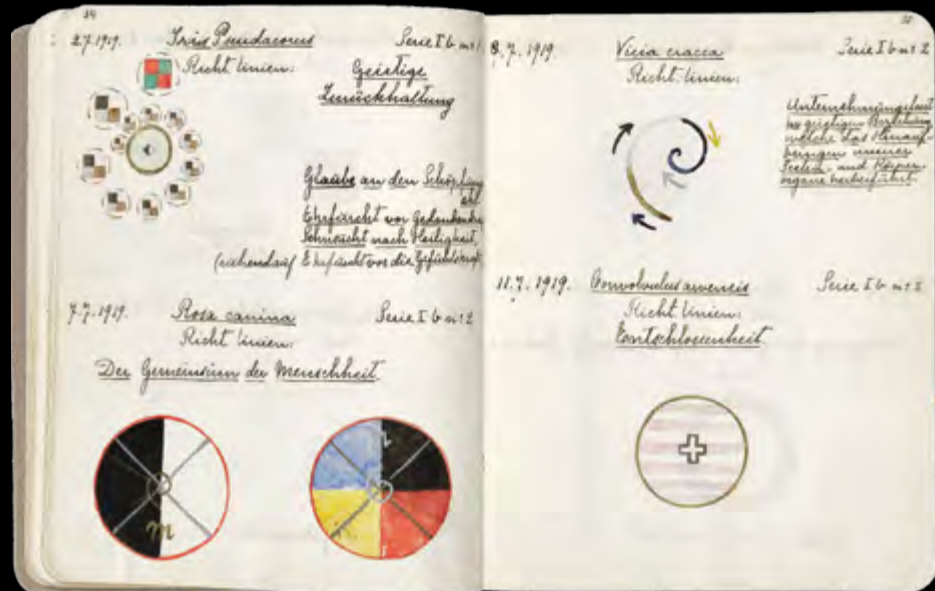 34
2.7.1919. Iris Pseudacorus Serie I b nr 1
Richt linien: Geistige
Zurückhaltung
Glaube an den Schöpfung
Ehrfurcht vor Gedanken
Sehnsucht nach Heiligkeit.
Ehrfurcht vor die
7.7.1919. Rosa canina Serie I b nr 2
Richt linien:
Der Gemeinsinn der Menschheit.
m
8.7.1919. Vicia cracca Serie I b nr 2
Richt linien:
Unternehmungslust
geistigen Beziehung
welche das Hinauf-
bringen unserer
Seelen- und Körper
organe herbeiführt.
11.7.1919. Convolvulus arvensis Serie I b nr 2
Richt linien:
Entschlossenheit